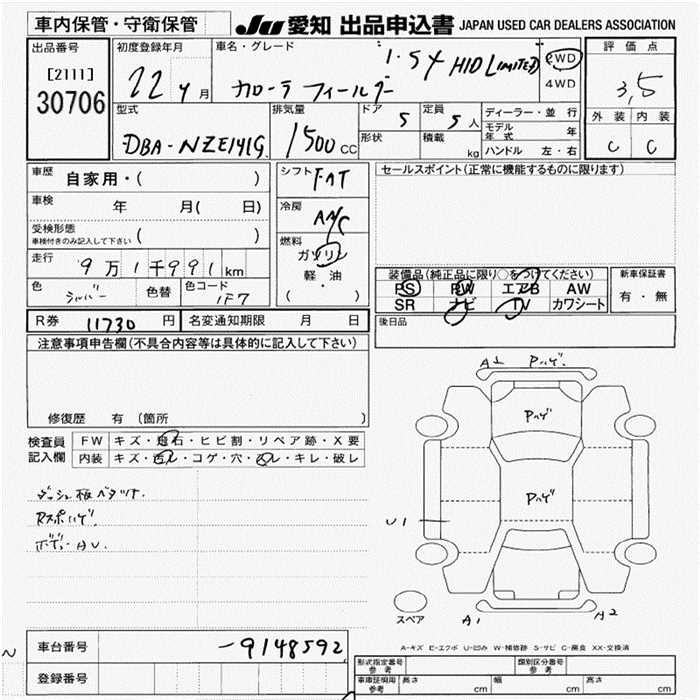 車内保管・守衛保管
JU 愛知 出品申込書 JAPAN USED CAR DEALERS ASSOCIATION
出品番号 初度登録年月 車名・グレード 評価点
[2111]
30706
22 年 4 月
カローラ フィールダー 1.5X HID LIMITED
2WD
4WD
3,5
外装 内装
C C
型式 排気量 ドア 定員 ディーラー・並行
DBA-NZE141G 1500 CC 5 5人
形状 積載 kg
モデル年式 年
ハンドル 左・右
車歴 自家用・( )
シフト FAT
セールスポイント(正常に機能するものに限ります)
車検 年 月( 日)
冷房 A/C
受検形態
車検付きのみ記入して下さい ( )
燃料 ガソリン
軽・油
( )
走行 9万1千991km
装備品(純正品に限り○をつけてください) 新車保証書
PS PW エアB AW
SR ナビ TV カワシート
有・無
色 シルバー 色替 色コード 1F7
R券 11730 円 名変通知期限 月 日
後日品
注意事項申告欄(不具合内容等は具体的に記入して下さい)
修復歴 有 (箇所 )
検査員記入欄
FW キズ・飛石・ヒビ割・リペア跡・X要
内装 キズ・汚レ・コゲ・穴・スレ・キレ・破レ
ダッシュ板ベタツキ.
Rスポハゲ.
ボデーAU.
A1 Pハゲ.
Pハゲ
Pハゲ
U1
スペア
A1
A2
A-キズ E-エクボ U-凹み W-補修跡 S-サビ C-腐食 XX-交換済
車台番号 -9148592
登録番号
型式指定番号 参考 類別区分番号 参考
車庫証明用 参考 長さ cm 幅 cm 高さ cm